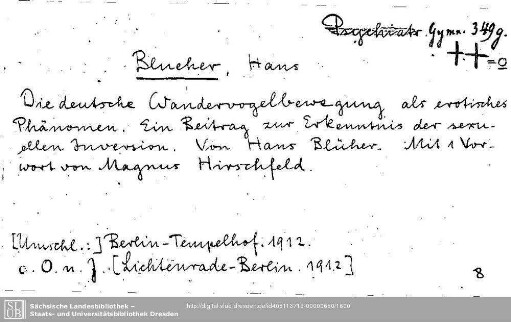 Psychiatr. Gymn. 349g.
++=0
Blueher, Hans
Die deutsche Wandervogelbewegung als erotisches
Phänomen. Ein Beitrag zur Erkenntnis der sexu-
ellen Inversion. Von Hans Blüher. Mit 1 Vor-
wort von Magnus Hirschfeld.
[Umschl.:] Berlin-Tempelhof. 1912.
o. O. u. J. [Lichtenrade-Berlin. 1912]
8
Sächsische Landesbibliothek –
Staats- und Universitätsbibliothek Dresden